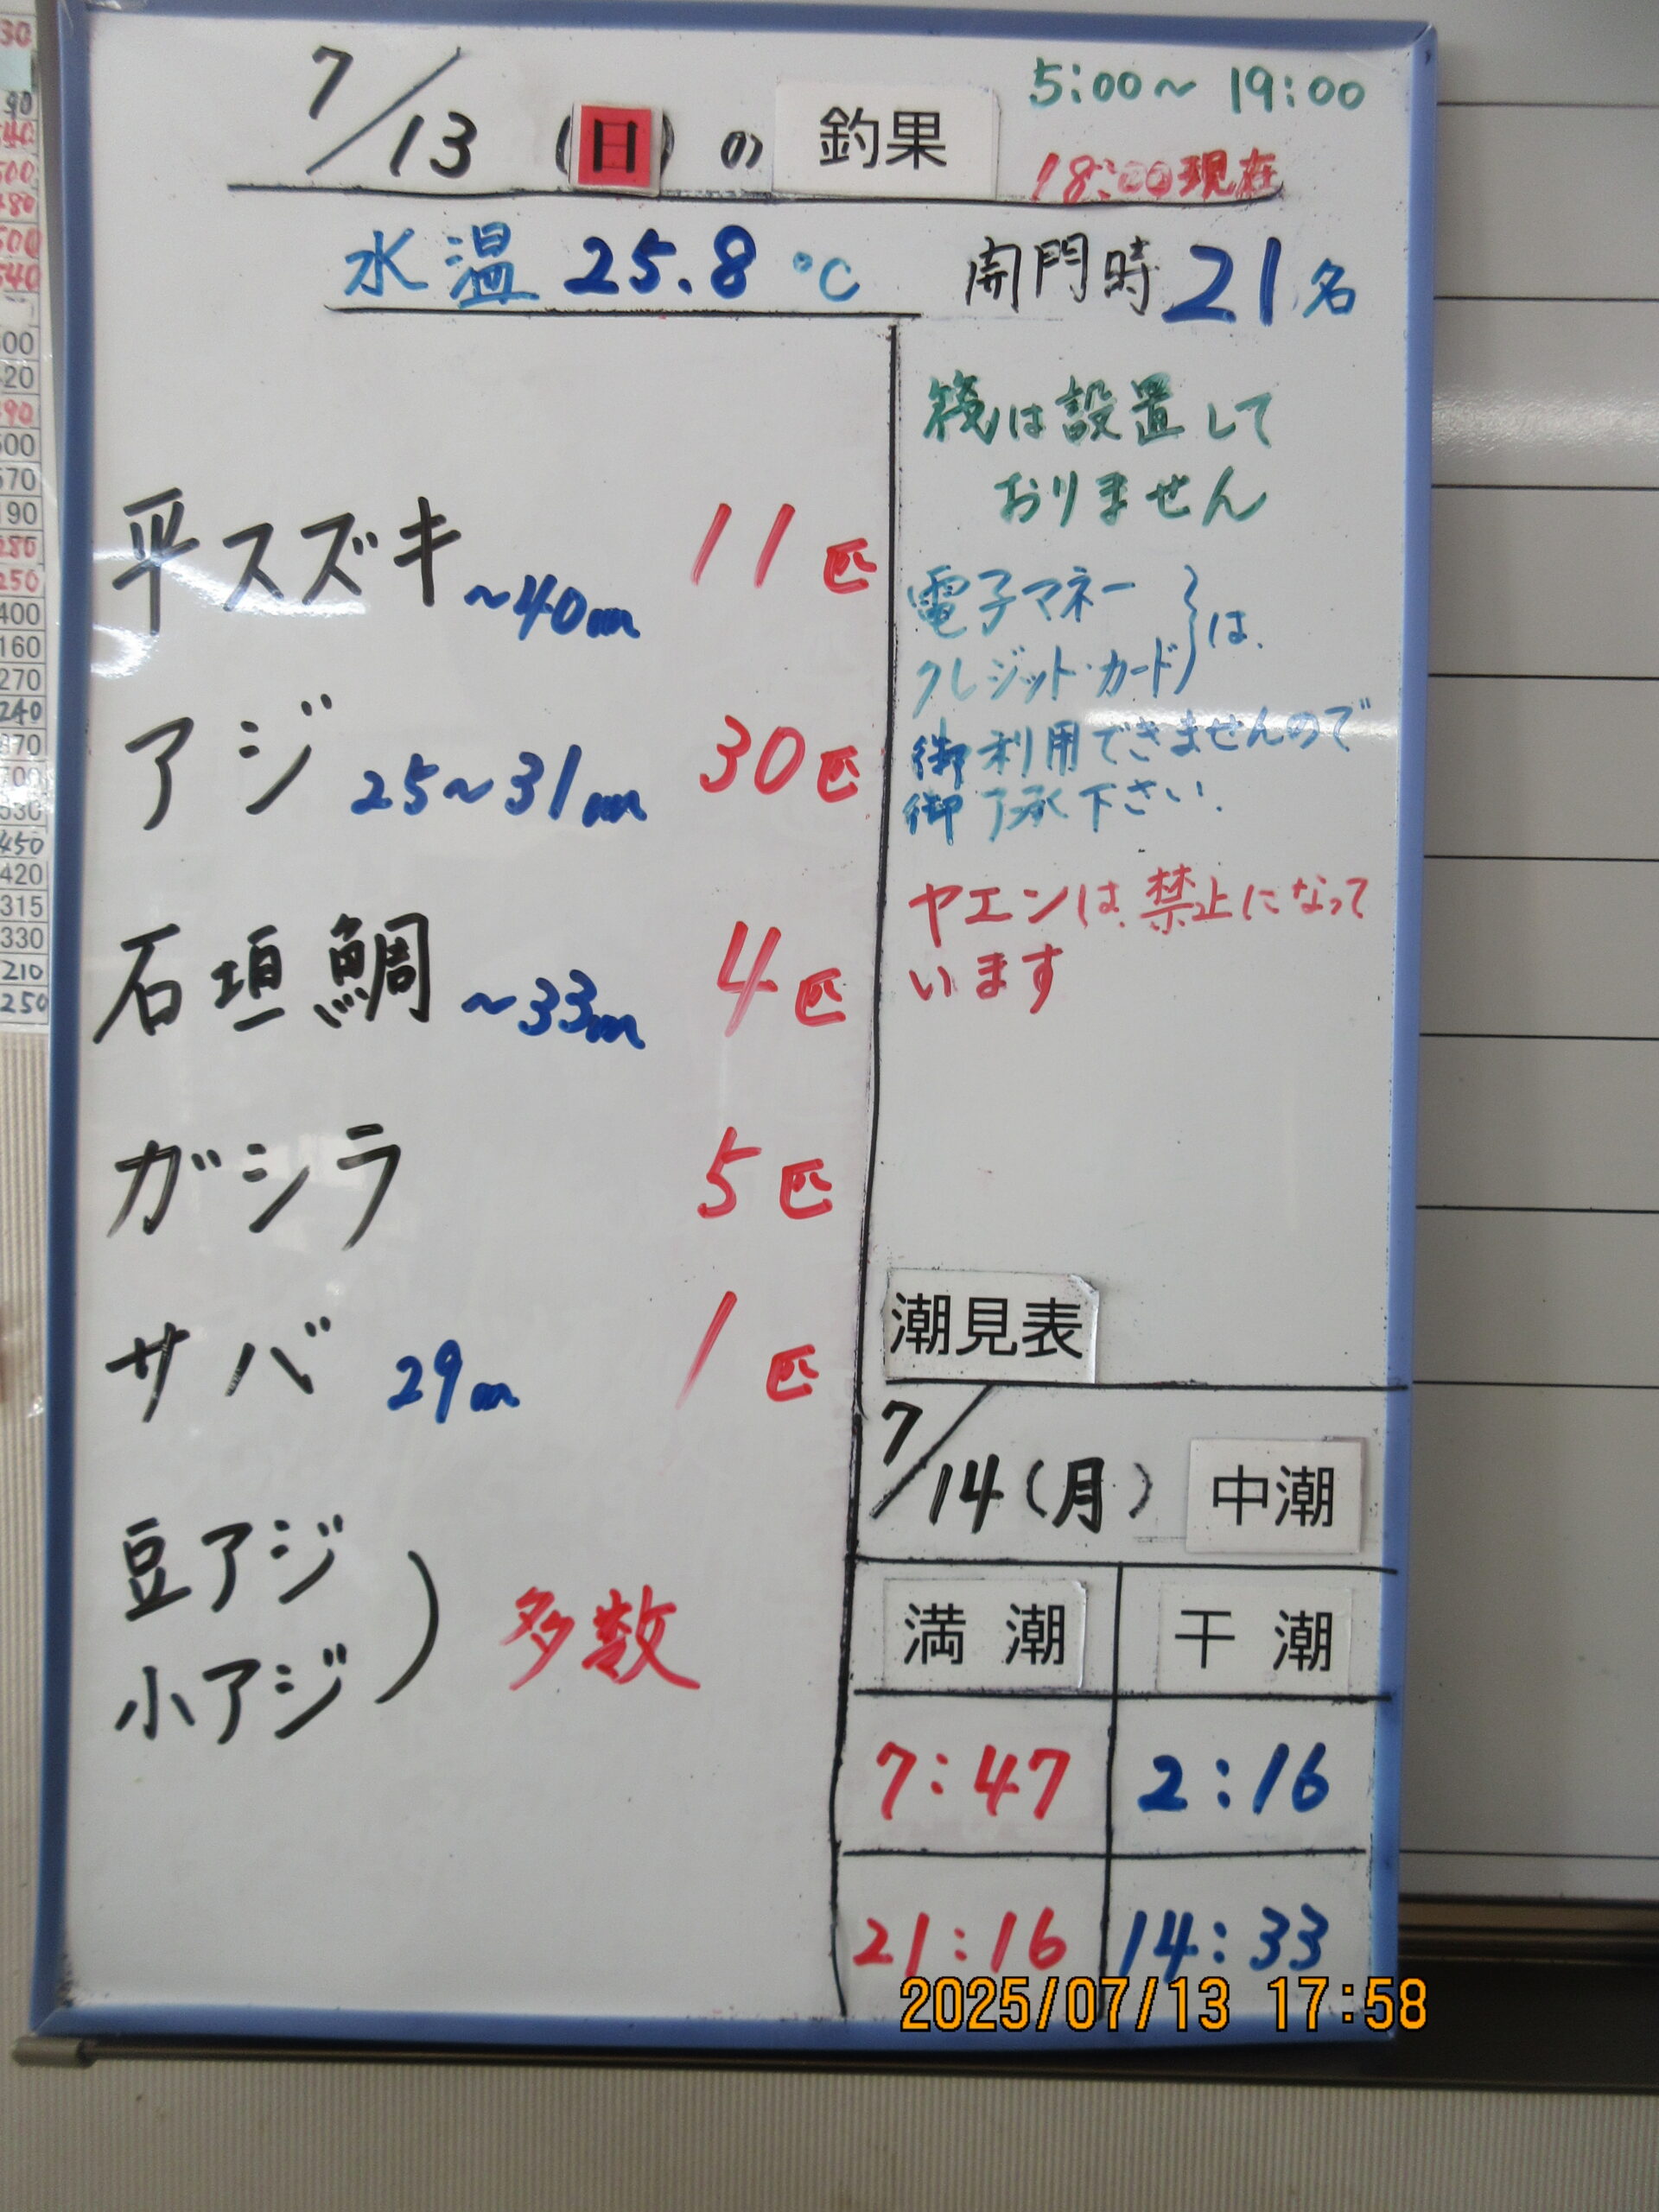 7/13 (日) の 釣果
5:00～19:00
18:00現在
水温 25.8 ℃
開門時 21名
平スズキ ~40cm 11匹
アジ 25~31cm 30匹
石垣鯛 ~33cm 4匹
ガシラ 5匹
サバ 29cm 1匹
豆アジ
小アジ) 多数
筏は設置して
おりません
電子マネー
クレジット・カード}は、
御利用できませんので
御了承下さい.
ヤエンは、禁止になって
います
潮見表
7/14(月) 中潮
満潮 干潮
7:47 2:16
21:16 14:33
2025/07/13 17:58
30
90
540
500
280
500
540
400
160
270
240
450
420
315
330
210
250